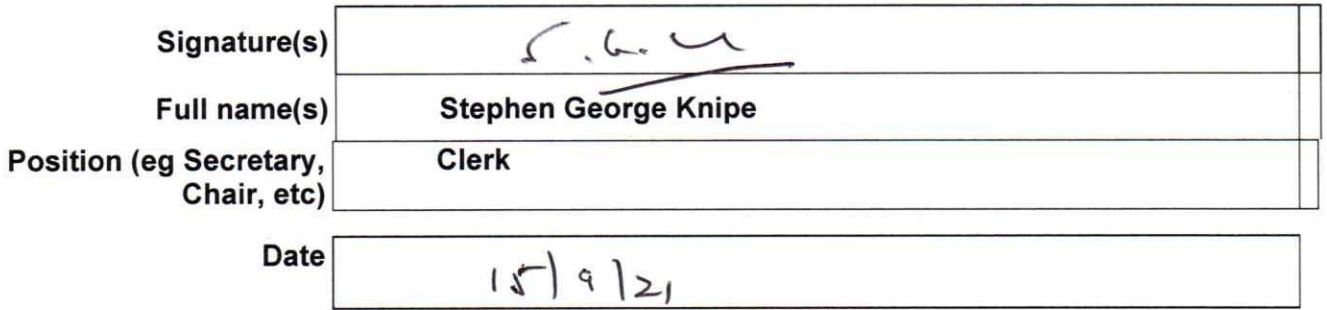 Signature(s)
Full name(s) Stephen George Knipe
Position (eg Secretary, Clerk
Chair, etc)
Date 15/9/21